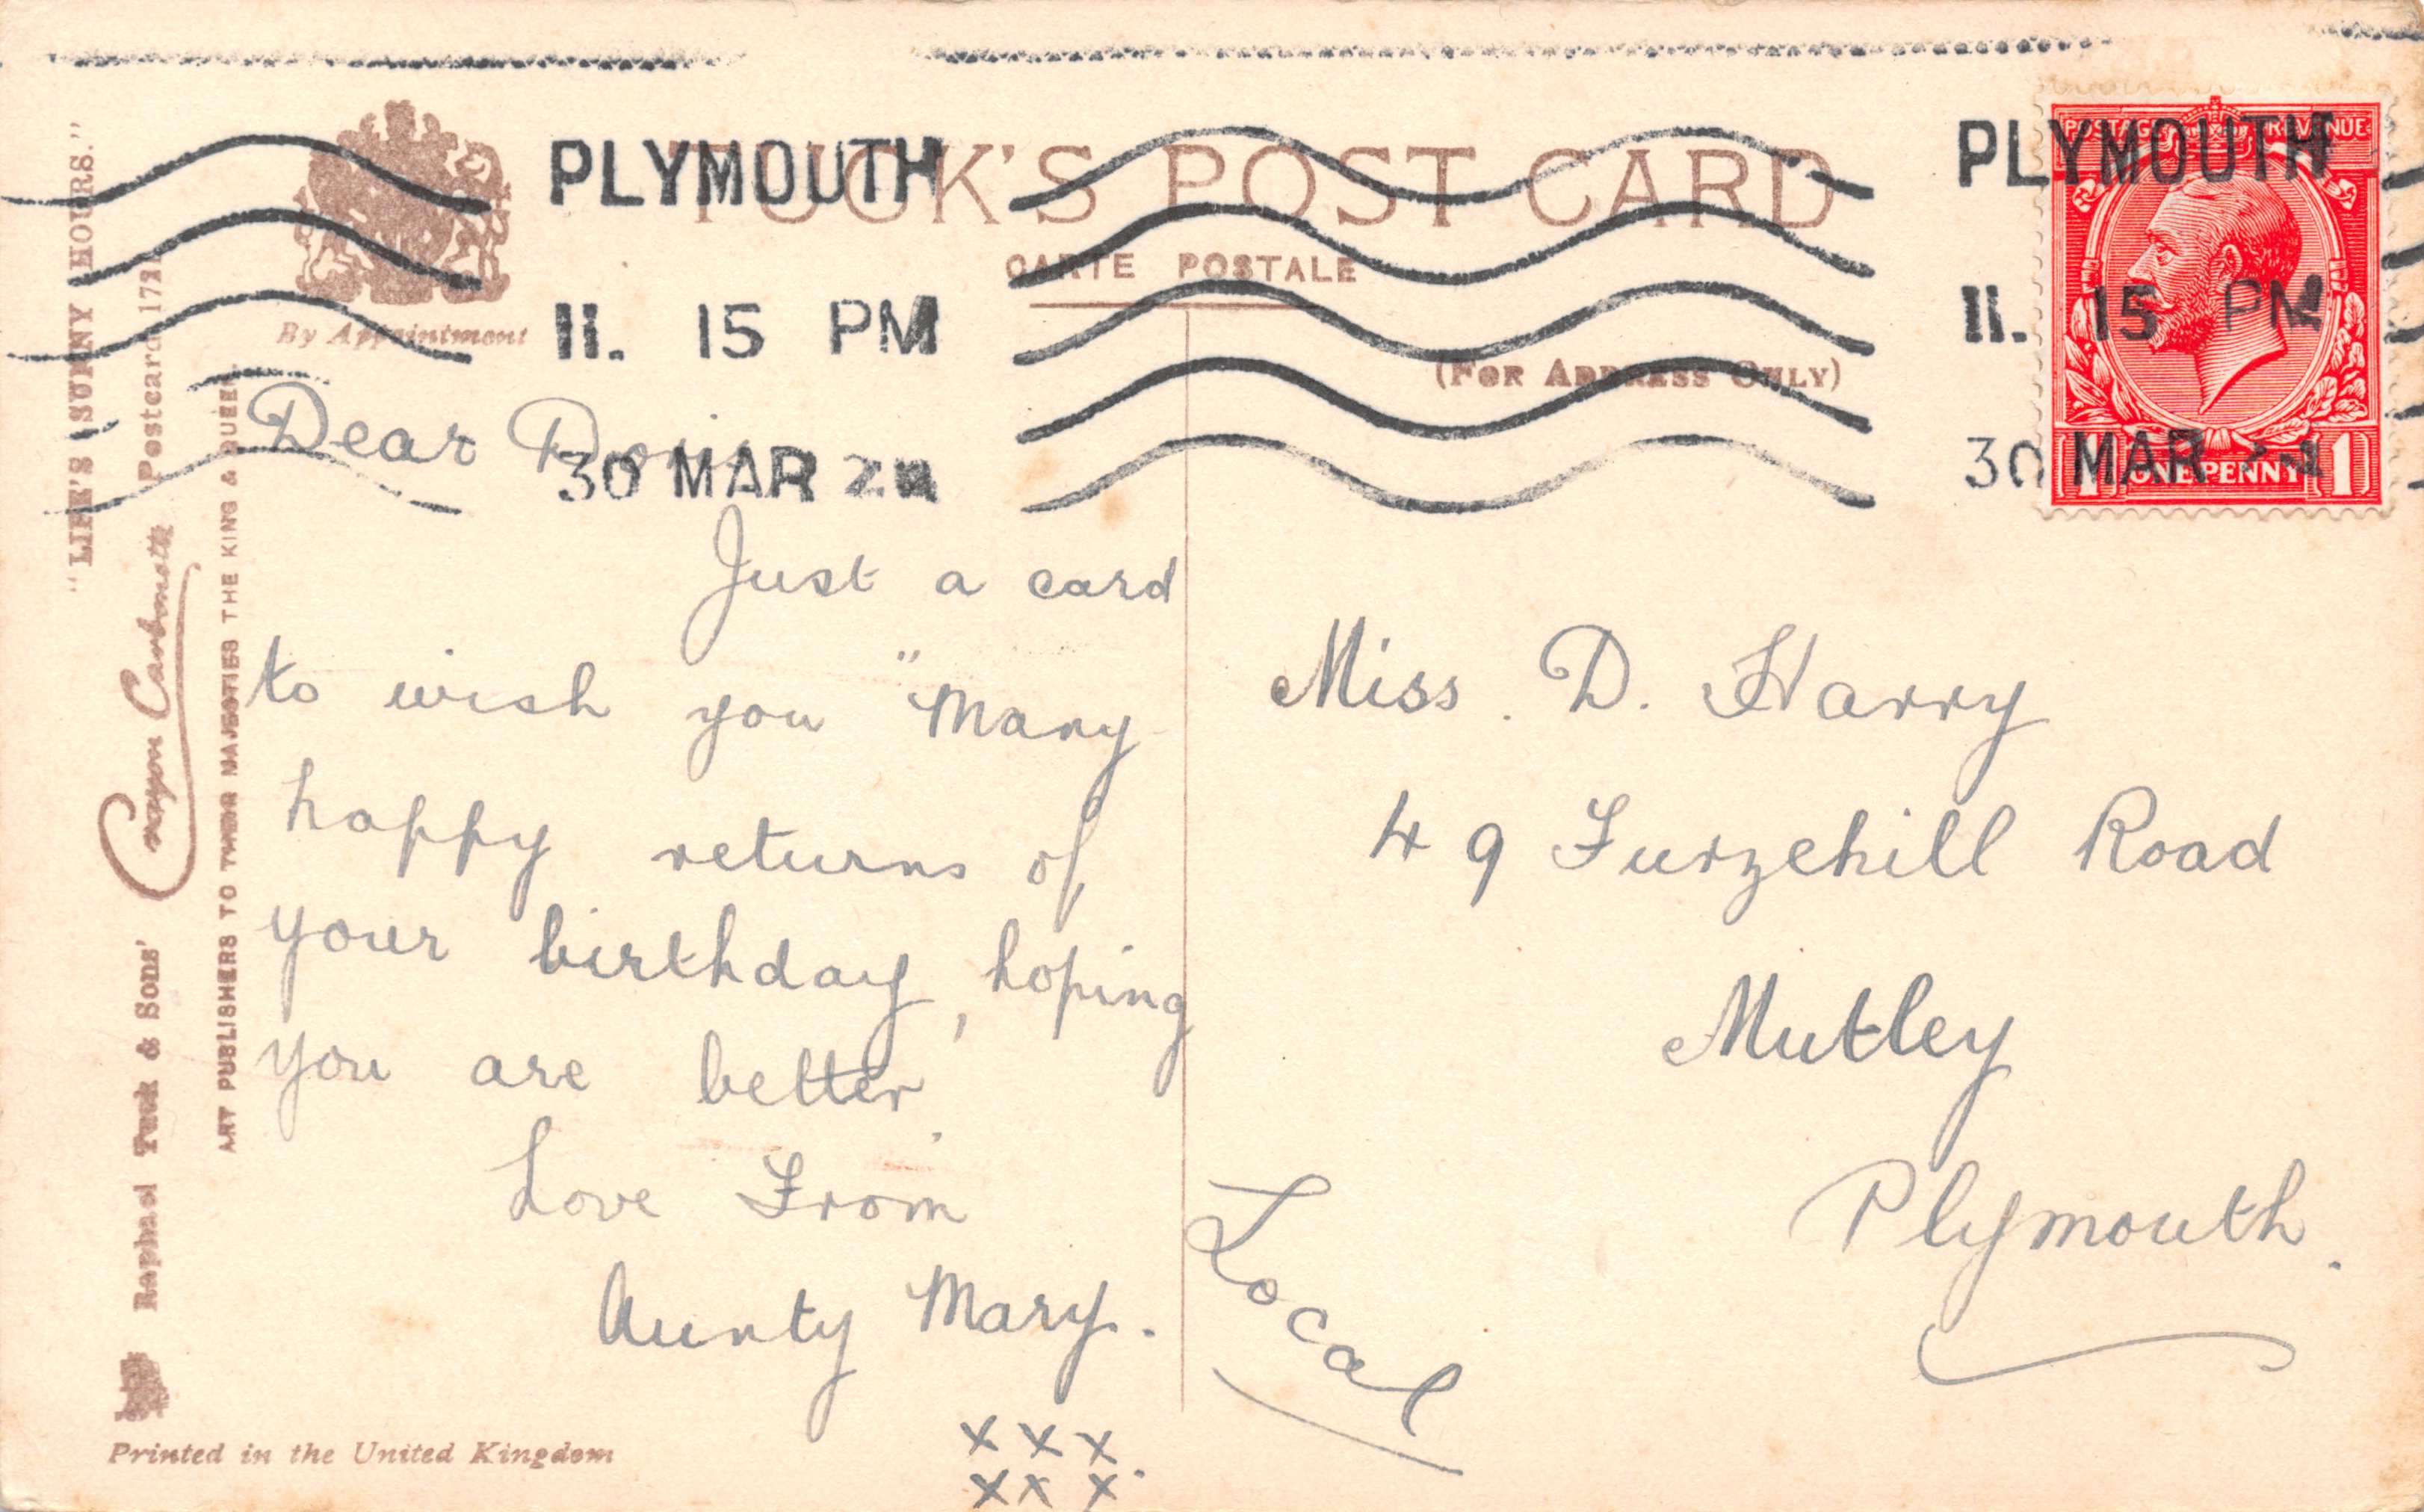 PLYMOUTH
11. 15 PM
30 MAR
PLYMOUTH
11. 15 PM
30 MAR
POSTAGE REVENUE
1 ONE PENNY 1
TUCK'S POST CARD
CARTE POSTALE
(FOR ADDRESS ONLY)
By Appointment
"LIFE'S SUNNY HOURS."
Raphael Tuck & Sons' Postcard
ART PUBLISHERS TO THEIR MAJESTIES THE KING & QUEEN.
Dear
Just a card
to wish you "Many
happy returns of
your birthday, hoping
you are better.
Love From
Aunty Mary.
x x x.
x x x
Miss. D. Harry
49 Furzehill Road
Mutley
Plymouth.
Local
Printed in the United Kingdom